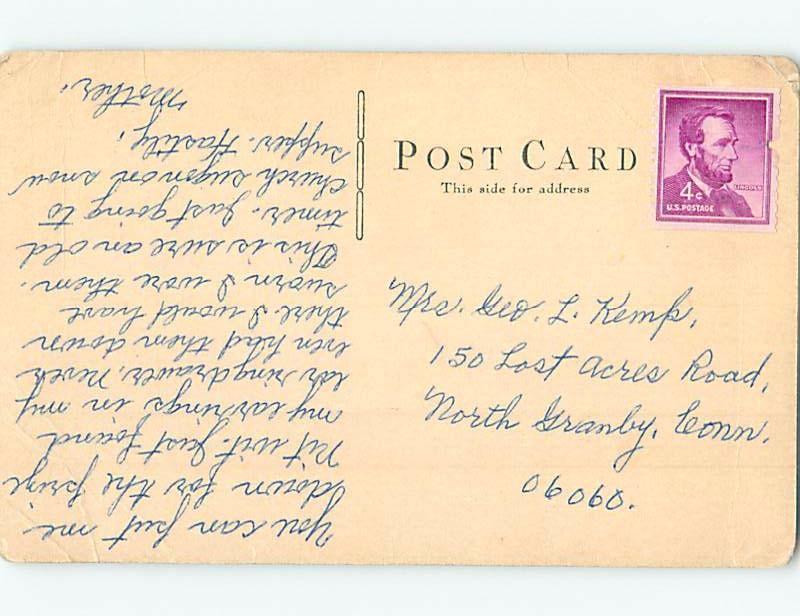 POST CARD
This side for address
LINCOLN
4¢
U.S. POSTAGE
Mrs. Geo. L. Kemp,
150 Lost Acres Road,
North Granby, Conn.
06060.
You can put me
down for the prize
Nit wit. Just found
my earrings in my
earring drawer. Never
even had them down
there. I would have
sworn I wore them.
This is sure an old
timer. Just going to
church supper on snow
supper. Hastily,
Mother.